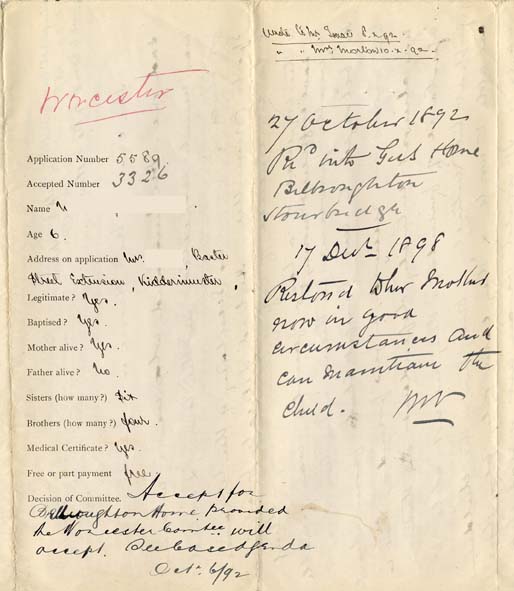 Worcester
Application Number 5589
Accepted Number 3326
Name
Age 6.
Address on application Mrs. Baxter
Street Extension, Kidderminster,
Legitimate? Yes.
Baptised? Yes
Mother alive? Yes.
Father alive? No
Sisters (how many?) Six
Brothers (how many?) four.
Medical Certificate? Yes.
Free or part payment free.
Decision of Committee. Accept for
Belbroughton Home provided
the Worcester Comtee will
accept. See Case Agenda
Oct. 6/92
27 October 1892
Rd. into Girls Home
Belbroughton
Stourbridge
17 Decr. 1898
Restored to her Mother
now in good
circumstances and
can maintain the
child.